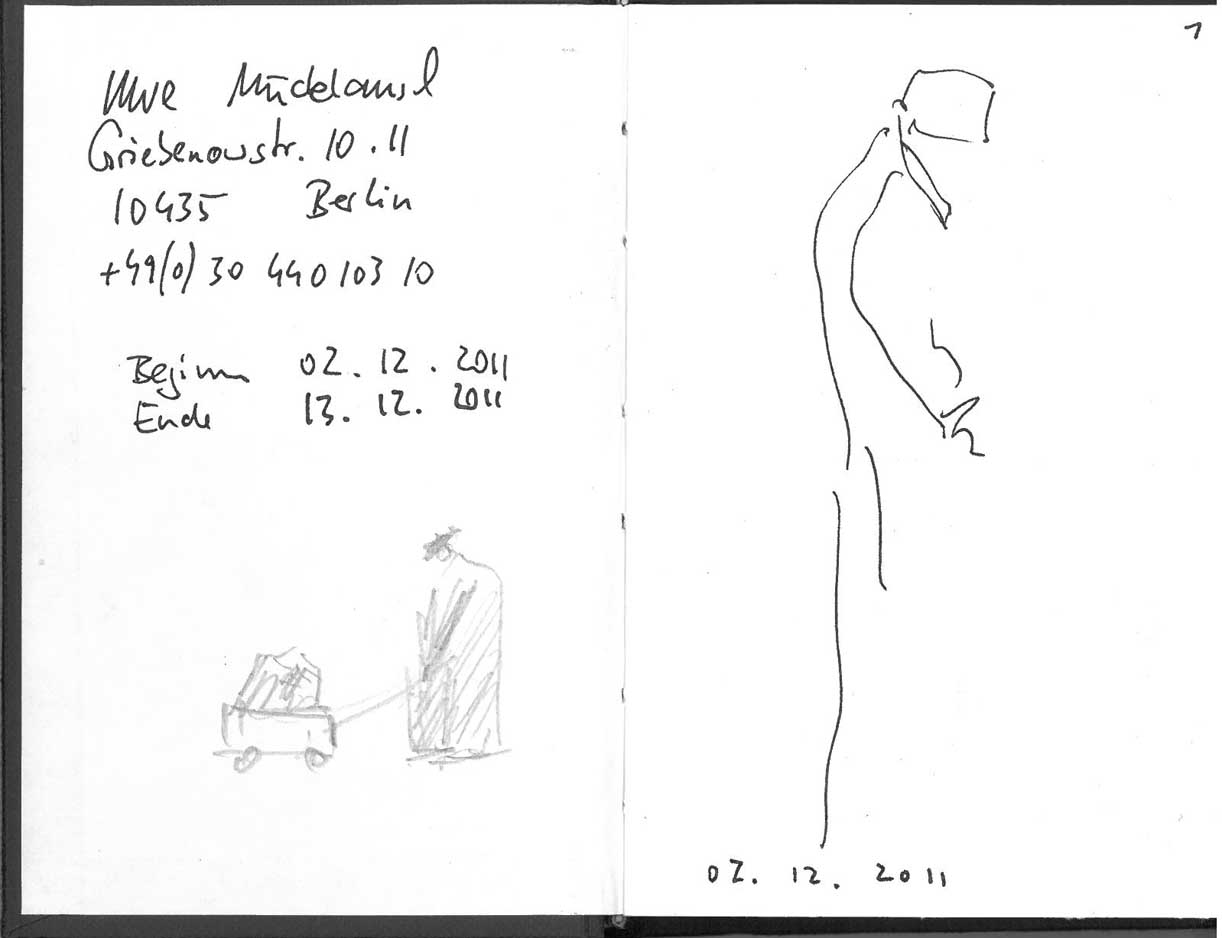 Uwe
Griebenowstr. 10.11
10435 Berlin
+49(0) 30 440 103 10
Beginn 02. 12. 2011
Ende 13. 12. 2011
1
02. 12. 2011